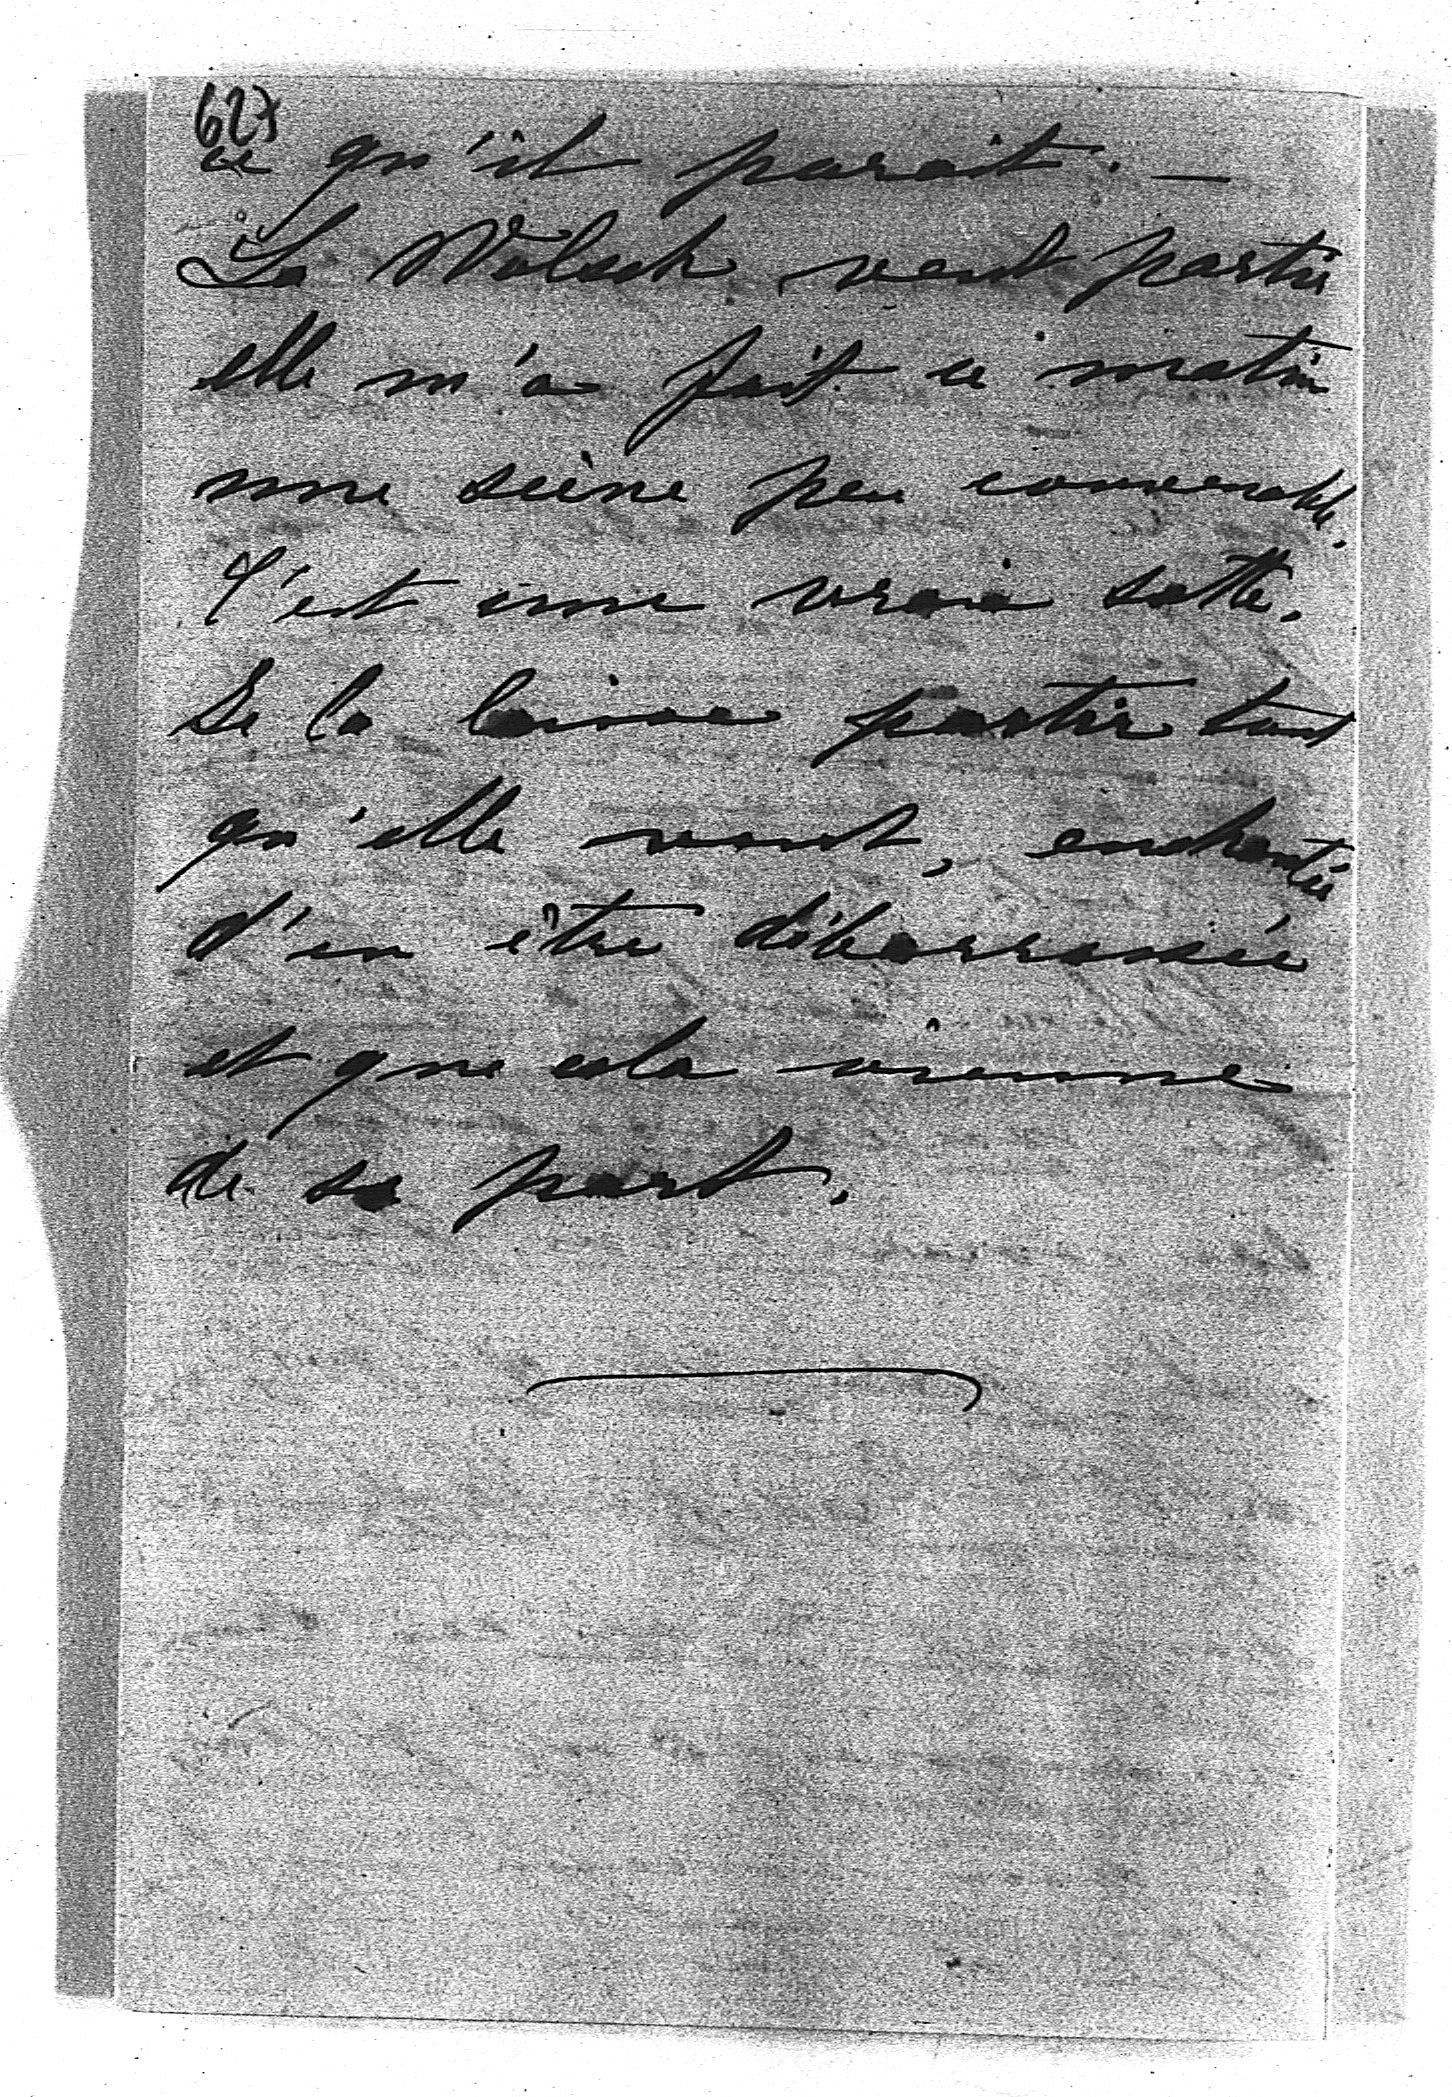 627
ce qu'il parait. —
La Walsch veut partir
elle m'a fait ce matin
une scène peu convenable.
C'est une vraie sotte.
Je la laisse partir tant
qu'elle veut, enchantée
d'en être débarrassée
et que cela vienne
de sa part.